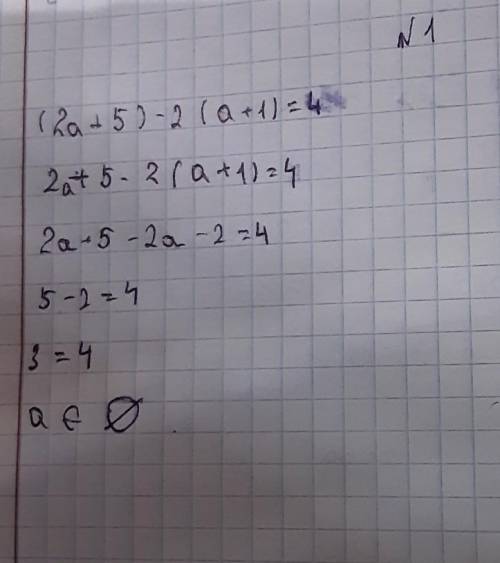 N 1
(2a + 5) - 2 (a + 1) = 4
2a + 5 - 2 (a + 1) = 4
2a + 5 - 2a - 2 = 4
5 - 2 = 4
3 = 4
a ∈ ∅